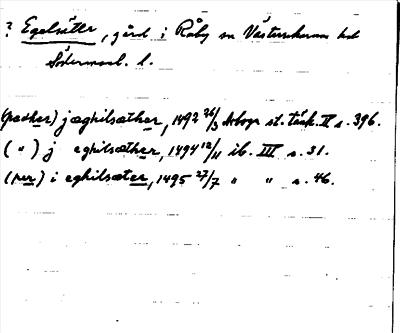 ? Egelsätter, gård i Råby sn Västerrekarne hd
Södermanl. l.
(pædher) j æghilsæther, 1492 26/3 Arboga st. tänk. II s. 396.
( " ) j eghilsæther, 1494 12/11 ib. III s. 31.
(per) i eghilsæter, 1495 27/7 " " s. 46.